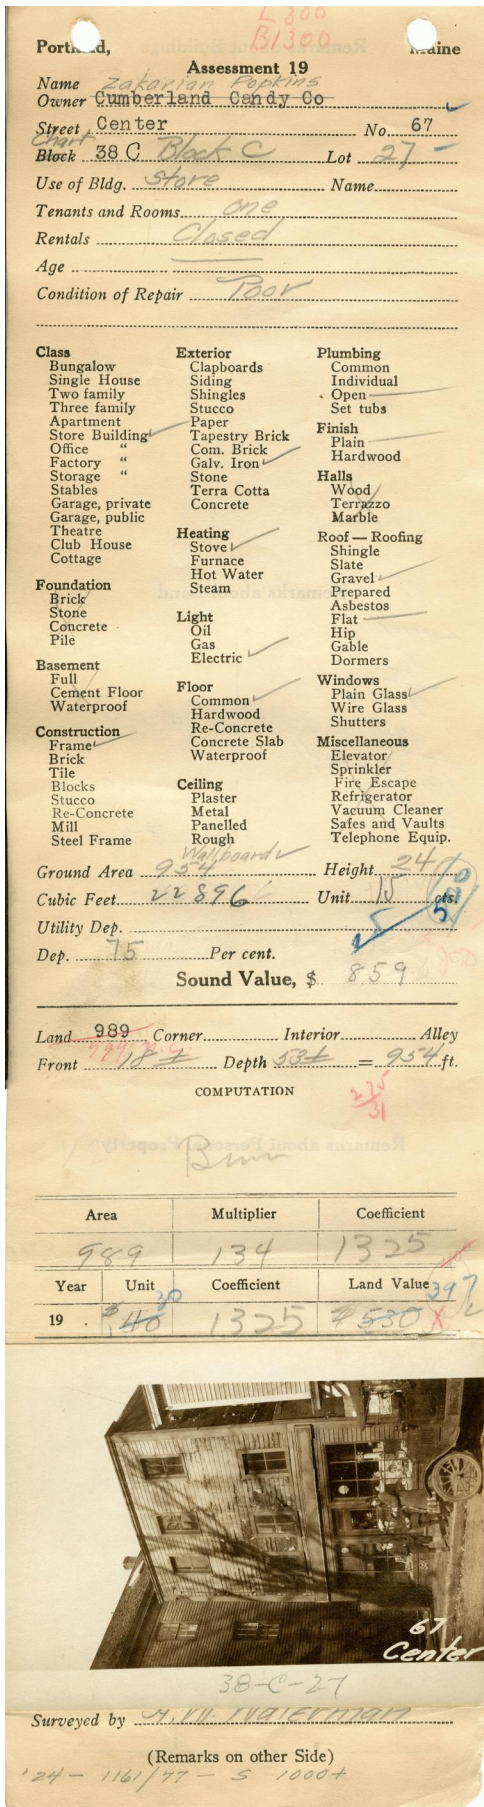 L 300
B1300
Portland, Maine
Assessment 19
Name Zakarian Popkins
Owner Cumberland Candy Co
Street Center No. 67
Chart
Block 38 C Block C Lot 27
Use of Bldg. Store Name
Tenants and Rooms one
Rentals Closed
Age
Condition of Repair Poor
Class
Bungalow
Single House
Two family
Three family
Apartment
Store Building
Office "
Factory "
Storage "
Stables
Garage, private
Garage, public
Theatre
Club House
Cottage
Foundation
Brick
Stone
Concrete
Pile
Basement
Full
Cement Floor
Waterproof
Construction
Frame
Brick
Tile
Blocks
Stucco
Re-Concrete
Mill
Steel Frame
Exterior
Clapboards
Siding
Shingles
Stucco
Paper
Tapestry Brick
Com. Brick
Galv. Iron
Stone
Terra Cotta
Concrete
Heating
Stove
Furnace
Hot Water
Steam
Light
Oil
Gas
Electric
Floor
Common
Hardwood
Re-Concrete
Concrete Slab
Waterproof
Ceiling
Plaster
Metal
Panelled
Rough
Wallboard
Plumbing
Common
Individual
Open
Set tubs
Finish
Plain
Hardwood
Halls
Wood
Terrazzo
Marble
Roof — Roofing
Shingle
Slate
Gravel
Prepared
Asbestos
Flat
Hip
Gable
Dormers
Windows
Plain Glass
Wire Glass
Shutters
Miscellaneous
Elevator
Sprinkler
Fire Escape
Refrigerator
Vacuum Cleaner
Safes and Vaults
Telephone Equip.
Ground Area 954 Height 24
Cubic Feet 22896 Unit 15 cts.
Utility Dep.
Dep. 75 Per cent.
Sound Value, $ 859
Land 989 Corner Interior Alley
Front 18± Depth 53± = 954 ft.
COMPUTATION
275
31
Area Multiplier Coefficient
989 134 1325
Year Unit Coefficient Land Value
30 397
19 . $40 1325 $530 X
67
Center
38-C-27
Surveyed by A.W. Waterman
(Remarks on other Side)
'24 - 1161/77 - S 1000+